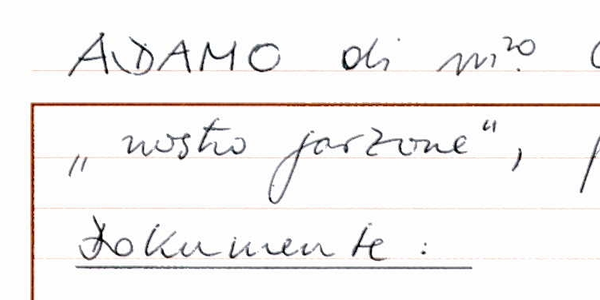 ADAMO di m.ro
„nostro garzone“,
Dokumente: